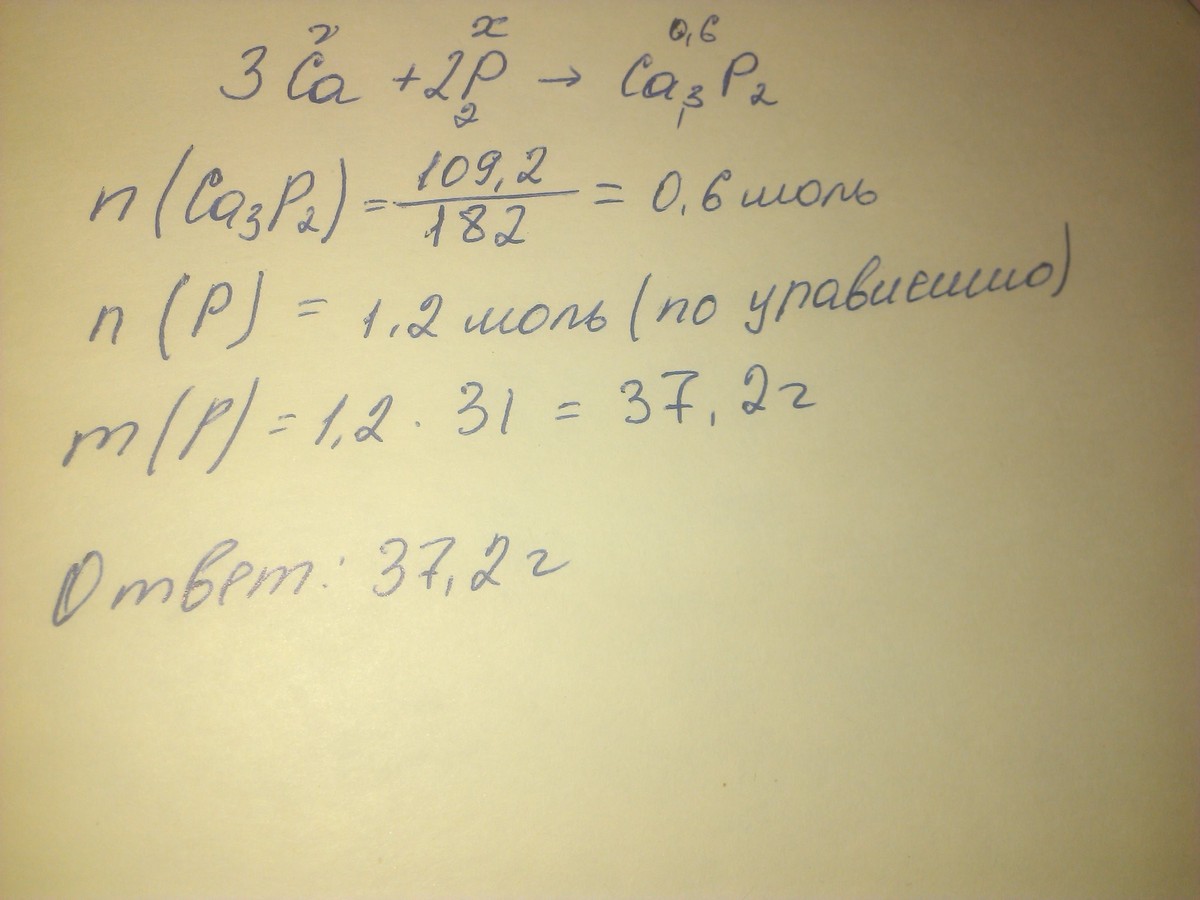 x 0,6
3Ca + 2P → Ca₃P₂
2 1
n(Ca₃P₂) = 109,2/182 = 0,6 моль
n(P) = 1,2 моль (по уравнению)
m(P) = 1,2 · 31 = 37,2 г
Ответ: 37,2 г